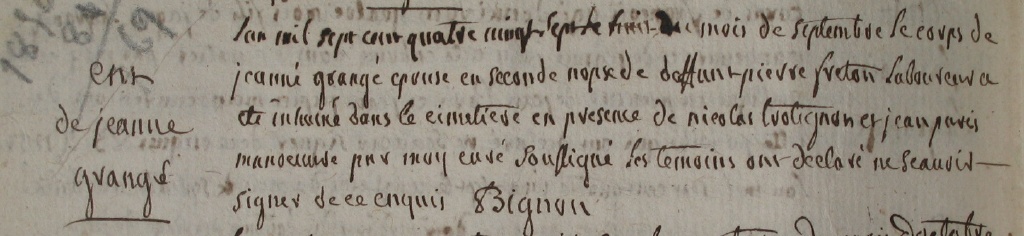 ent
de jeanne
grangé
lan mil sept cent quatre vingt sept le huit du mois de septembre le corps de
jeanne grangé epouse en seconde nopse de deffunt pierre freton laboureur a
ete inhumé dans le cimetiere en presence de nicolas trotignon et jean paris
manoeuvre par moy curé soussigné les temoins ont declaré ne scavoir
signer de ce enquis Bignon